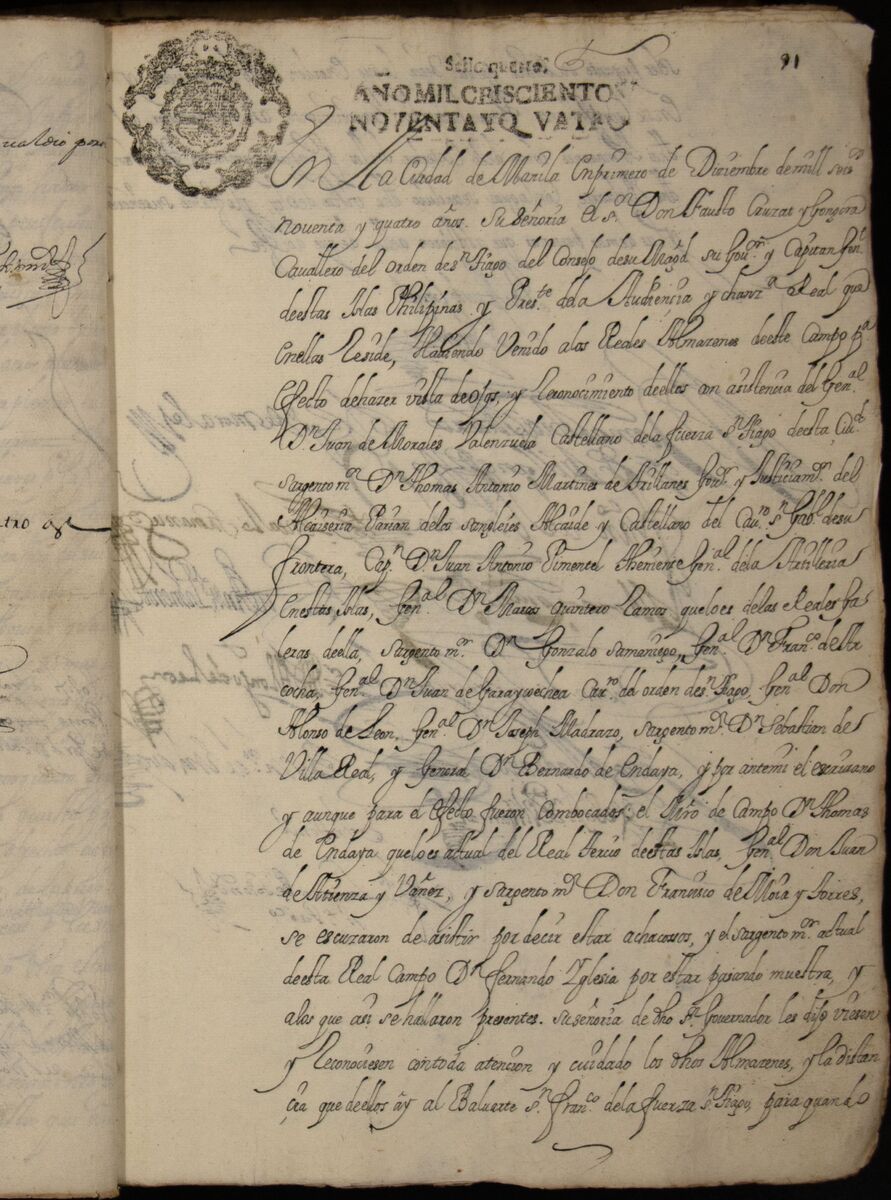 91
Sello quarto
AÑO MIL CEISCIENTOS
NOVENTA Y Q VATRO
En la Ciudad de Manila en primero de Diziembre de mill seisos
noventa y quatro años. Su señoria el sr. Don Fausto Cruzat y Gongora
Cavallero del orden de sn tiago del Consejo de su Magd su Govr. y Capitan Genl
de estas Islas Philipinas y Preste. de la Audiencia y chanza Real que
en ellas Reside, Haviendo Venido a los Reales Almazenes de este Campo pa
efecto de hazer vista de ojos, y Reconocimiento de ellos con asistencia del Genal
Dn Juan de Morales Valenzuela Castellano de la fuerza sn tiago de esta Ciud
sargento mr Dn Thomas Antonio Martines de Arillanes Govr. y Justicia mr. del
Alcaiseria Parian de los sangleies Alcaide y Castellano del Cavro. sn Gabl de su
frontera, Capn Dn Juan Antonio Pimentel theniente Genal. de la Artilleria
en estas Islas, Genal. Dn Marcos Quintero Ramos que lo es de las Reales Ga
leras de ella, sargento mr. Dn Gonzalo Samaniego, Genal Dn Franco. de Atr
cocha, Genal Dn Juan de Garaycoechea Cavro del orden de sn tiago, Genal Don
Alonso de Leon, Genal. Dn Joseph Madrazo, sargento mr. Dn Sebastian de
Villa Real, y General Dn Bernardo de Endaya, y por ante mi el escrivano
y aunque para el efecto fueron combocados; el Mro de Campo Dn Thomas
de Endaya que lo es actual del Real tercio de estas Islas, Genal Don Juan
de Atienza y Vañez, y sargento mr Don Francisco de Moia y torres,
se escuzaron de asistir por decir estar achacosos, y el sargento mr actual
de esta Real Campo Dn fernando Yglesia por estar pasando muestra, y
a los que asi se hallaron presentes. Su señoria de dho sr Governador les dijo viesen
y Reconociesen con toda atencion y cuidado los dhos Almazenes, y la distan
cia que de ellos ay al Baluarte sn franco de la fuerza sn tiago, para quando